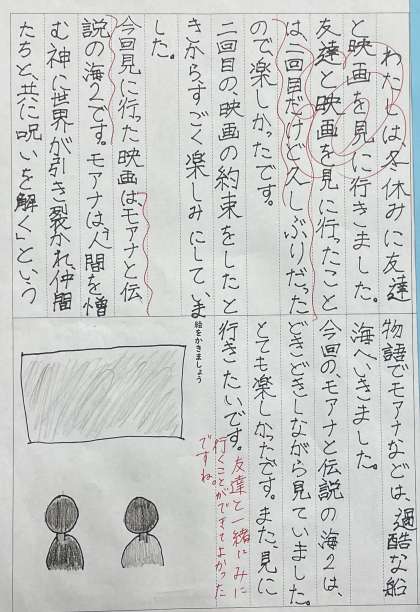 わたしは、冬休みに友達
と映画を見に行きました。
友達と映画を見に行ったこと
は、二回目だけど久しぶりだった
ので、楽しかったです。
二回目の、映画の約束をしたと
きから、すごく楽しみにしていま
した。
今回見に行った映画は、モアナと伝
説の海2です。モアナは、「人間を憎
む神に世界が引き裂かれ、仲間
たちと、共に呪いを解く」という
物語でモアナなどは、過酷な船
海へいきました。
今回の、モアナと伝説の海2は、
どきどきしながら見ていました。
とても楽しかったです。また、見に
行きたいです。
友達と一緒にみに
行くことができてよかった
ですね。
絵をかきましょう